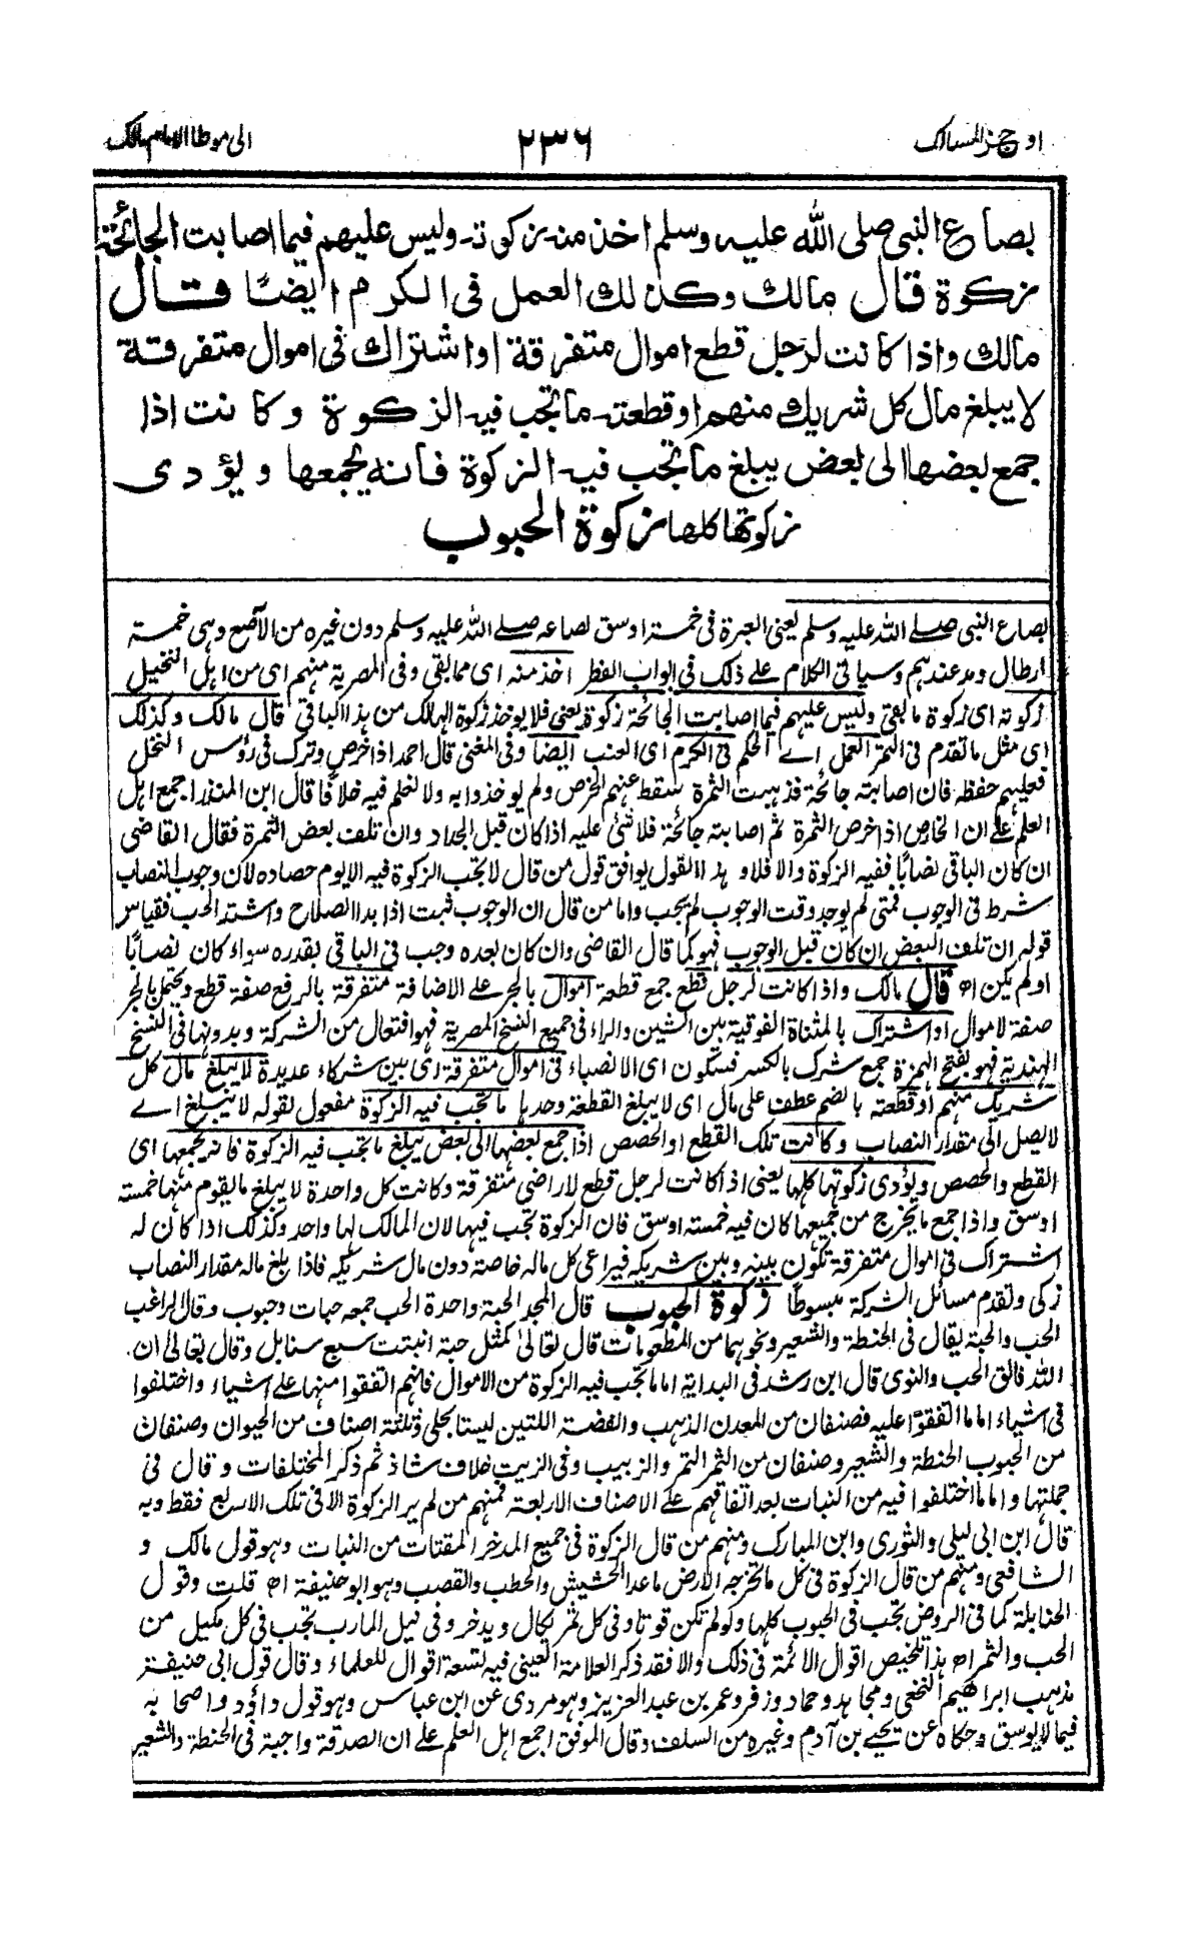 اوجز المسالك
٢٣٦
الى موطا الامام مالك
بصاع النبى صلى الله عليه وسلم اخذ منه زكوته وليس عليهم فيما اصابت الجائحة
زكوة قال مالك وكذلك العمل فى الكرم ايضًا قال
مالك واذا كانت لرجل قطع اموال متفرقة او اشتراك فى اموال متفرقة
لا يبلغ مال كل شريك منهم او قطعته ما تجب فيه الزكوة وكانت اذا
جمع بعضها الى بعض يبلغ ما تجب فيه الزكوة فانه يجمعها ويؤدى
زكوتها كلها زكوة الحبوب
بصاع النبى صلے الله عليه وسلم يعنى العبرة فى خمسة اوسق بصاعه صلے الله عليه وسلم دون غيره من الآصع وهى خمسة
ارطال ومد عندهم وسياتى الكلام على ذلك فى ابواب الفطر اخذ منه اى مما بقى وفى المصرية منهم اى من اهل النخيل
زكوته اى زكوة ما بقى وليس عليهم فيما اصابت الجائحة زكوة يعنى فلا يوخذ زكوة الهالك من هذا الباقى قال مالك وكذلك
اى مثل ما تقدم فى التمر العمل اے الحكم فى الكرم اى العنب ايضا وفى المغنى قال احمد اذا خرص وترك فى رؤس النخل
فعليهم حفظه فان اصابته جائحة فذهبت الثمرة سقط عنهم الخرص ولم يوخذوا به ولا نعلم فيه خلافا قال ابن المنذر اجمع اهل
العلم على ان الخارص اذا خرص الثمرة ثم اصابته جائحة فلا شئ عليه اذا كان قبل الجداد وان تلف بعض الثمرة فقال القاضى
ان كان الباقى نصابًا ففيه الزكوة والا فلا وهذا القول يوافق قول من قال لا تجب الزكوة فيه الا يوم حصاده لان وجوب النصاب
شرط فى الوجوب فمتى لم يوجد وقت الوجوب لم يجب واما من قال ان الوجوب ثبت اذا بدا الصلاح واشتد الحب فقياس
قوله ان تلف البعض ان كان قبل الوجوب فهو كما قال القاضى وان كان بعده وجب فى الباقى بقدره سواء كان نصابًا
او لم يكن اه قال مالك واذا كانت لرجل قطع جمع قطعة اموال بالجر على الاضافة متفرقة بالرفع صفة قطع ويحتمل بالجر
صفة لاموال او اشتراك بالمثناة الفوقية بين الشين والراء فى جميع النسخ المصرية فهو افتعال من الشركة وبدونها فى النسخ
الهندية فهو بفتح الهمزة جمع شرك بالكسر فسكون اى الانصباء فى اموال متفرقة اى بين شركاء عديدة لا يبلغ مال كل
شريك منهم او قطعته بالضم عطف على مال اى لا يبلغ القطعة وحدها ما تجب فيه الزكوة مفعول لقوله لا يبلغ اے
لا يصل الى مقدار النصاب وكانت تلك القطع او الحصص اذا جمع بعضها الى بعض يبلغ ما تجب فيه الزكوة فانه يجمعها اى
القطع والحصص ويؤدى زكوتها كلها يعنى اذا كانت لرجل قطع لاراضى متفرقة وكانت كل واحدة لا يبلغ ما يقوم منها خمسة
اوسق واذا جمع ما يخرج من جميعها كان فيه خمسة اوسق فان الزكوة تجب فيها لان المالك لها واحد وكذلك اذا كان له
اشتراك فى اموال متفرقة تكون بينه وبين شريكه فيراعى كل ماله خاصة دون مال شريكه فاذا بلغ ماله مقدار النصاب
زكى وتقدم مسائل الشركة مبسوطا زكوة الحبوب قال المجد الحبة واحدة الحب جمعه حبات وحبوب وقال الراغب
الحب والحبة يقال فى الحنطة والشعير ونحوهما من المطعومات قال تعالى كمثل حبة انبتت سبع سنابل وقال تعالى ان
الله فالق الحب والنوى قال ابن رشد فى البداية اما ما تجب فيه الزكوة من الاموال فانهم اتفقوا منها على اشياء واختلفوا
فى اشياء اما ما اتفقوا عليه فصنفان من المعدن الذهب والفضة اللتين ليستا بحلى وثلثة اصناف من الحيوان وصنفان
من الحبوب الحنطة والشعير وصنفان من الثمر التمر والزبيب وفى الزيت خلاف شاذ ثم ذكر المختلفات وقال فى
جملتها واما ما اختلفوا فيه من النبات بعد اتفاقهم على الاصناف الاربعة فمنهم من لم ير الزكوة الا فى تلك الاربع فقط وبه
قال ابن ابى ليلى والثورى وابن المبارك ومنهم من قال الزكوة فى جميع المدخر المقتات من النبات وهو قول مالك و
الشافعى ومنهم من قال الزكوة فى كل ما تخرجه الارض ما عدا الحشيش والحطب والقصب وهو ابو حنيفة اه قلت وقول
الحنابلة كما فى الروض تجب فى الحبوب كلها ولو لم تكن قوتا وفى كل ثمر يكال ويدخر وفى نيل المارب تجب فى كل مكيل من
الحب والثمر اه هذا تلخيص اقوال الائمة فى ذلك والا فقد ذكر العلامة العينى فيه تسعة اقوال للعلماء وقال قول ابى حنيفة
مذهب ابراهيم النخعى ومجاهد وحماد وزفر وعمر بن عبد العزيز وهو مروى عن ابن عباس وهو قول داؤد واصحابه
فيما لا يوسق وحكاه عن يحيے بن آدم وغيره من السلف وقال الموفق اجمع اهل العلم على ان الصدقة واجبة فى الحنطة والشعير